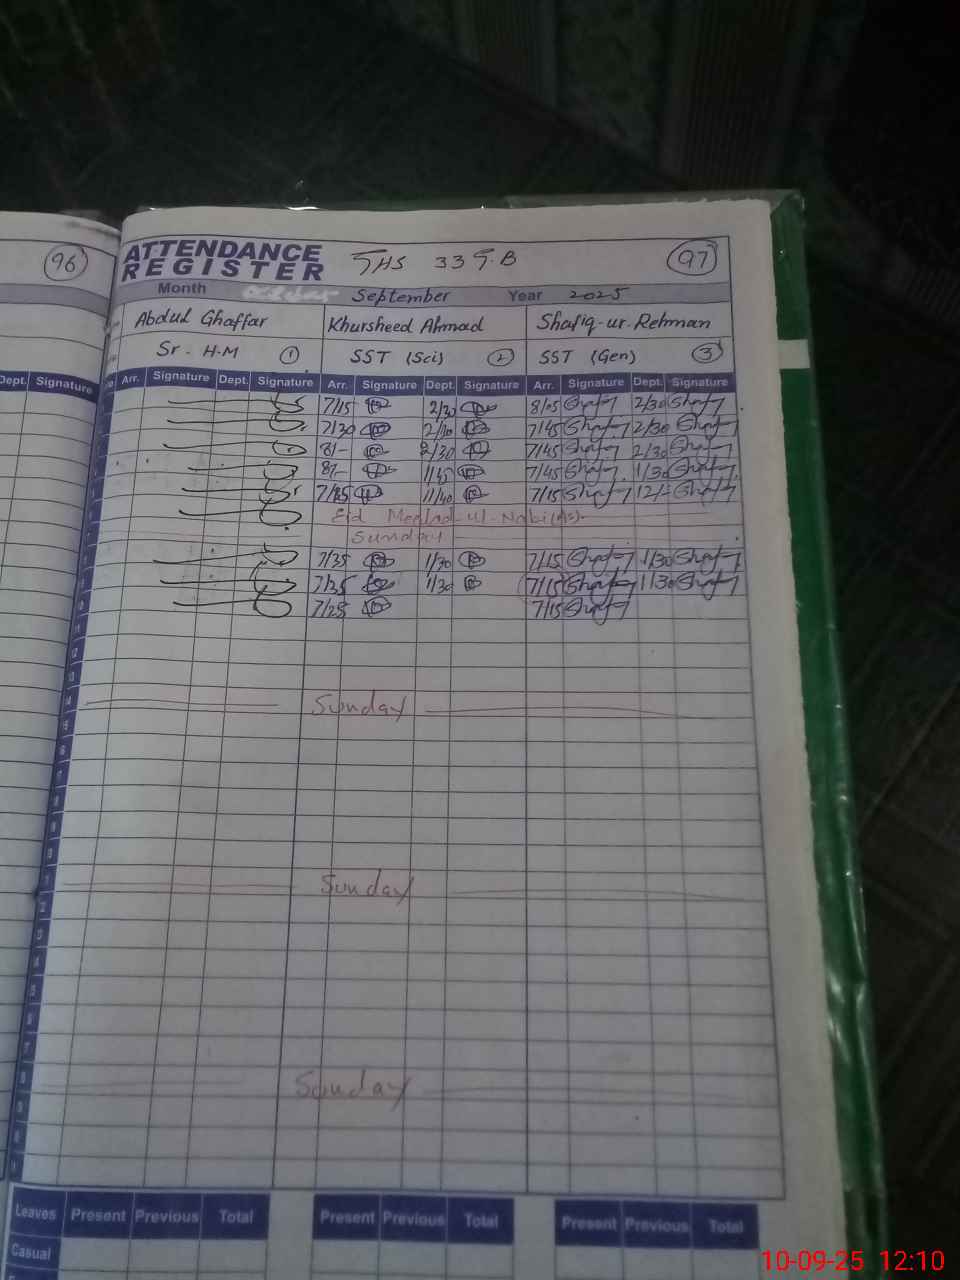 96
ATTENDANCE REGISTER GHS 33 G.B 97
Month September Year 2025
Abdul Ghaffar Khursheed Ahmad Shafiq-ur-Rehman
Sr. H.M 1 SST (Sci) 2 SST (Gen) 3
Dept. Signature Arr. Signature Dept. Signature Arr. Signature Dept. Signature Arr. Signature Dept. Signature
7/15 2/30 8/05 Shafiq 2/30 Shafiq
7/30 2/30 7/45 Shafiq 2/30 Shafiq
8/- 2/30 7/45 Shafiq 2/30 Shafiq
8/- 1/45 7/45 Shafiq 1/30 Shafiq
11/40 7/15 Shafiq 12/- Shafiq
Eid Meelad-ul-Nabi
Sunday
7/35 1/30 7/15 Shafiq 1/30 Shafiq
7/35 1/30 7/15 Shafiq 1/30 Shafiq
7/25 7/15 Shafiq
11
12
13
14 Sunday
15
16
17
8
9
1 Sunday
2
3
4
5
6
7
8 Sunday
9
Leaves Present Previous Total Present Previous Total Present Previous Total
Casual
10-09-25 12:10